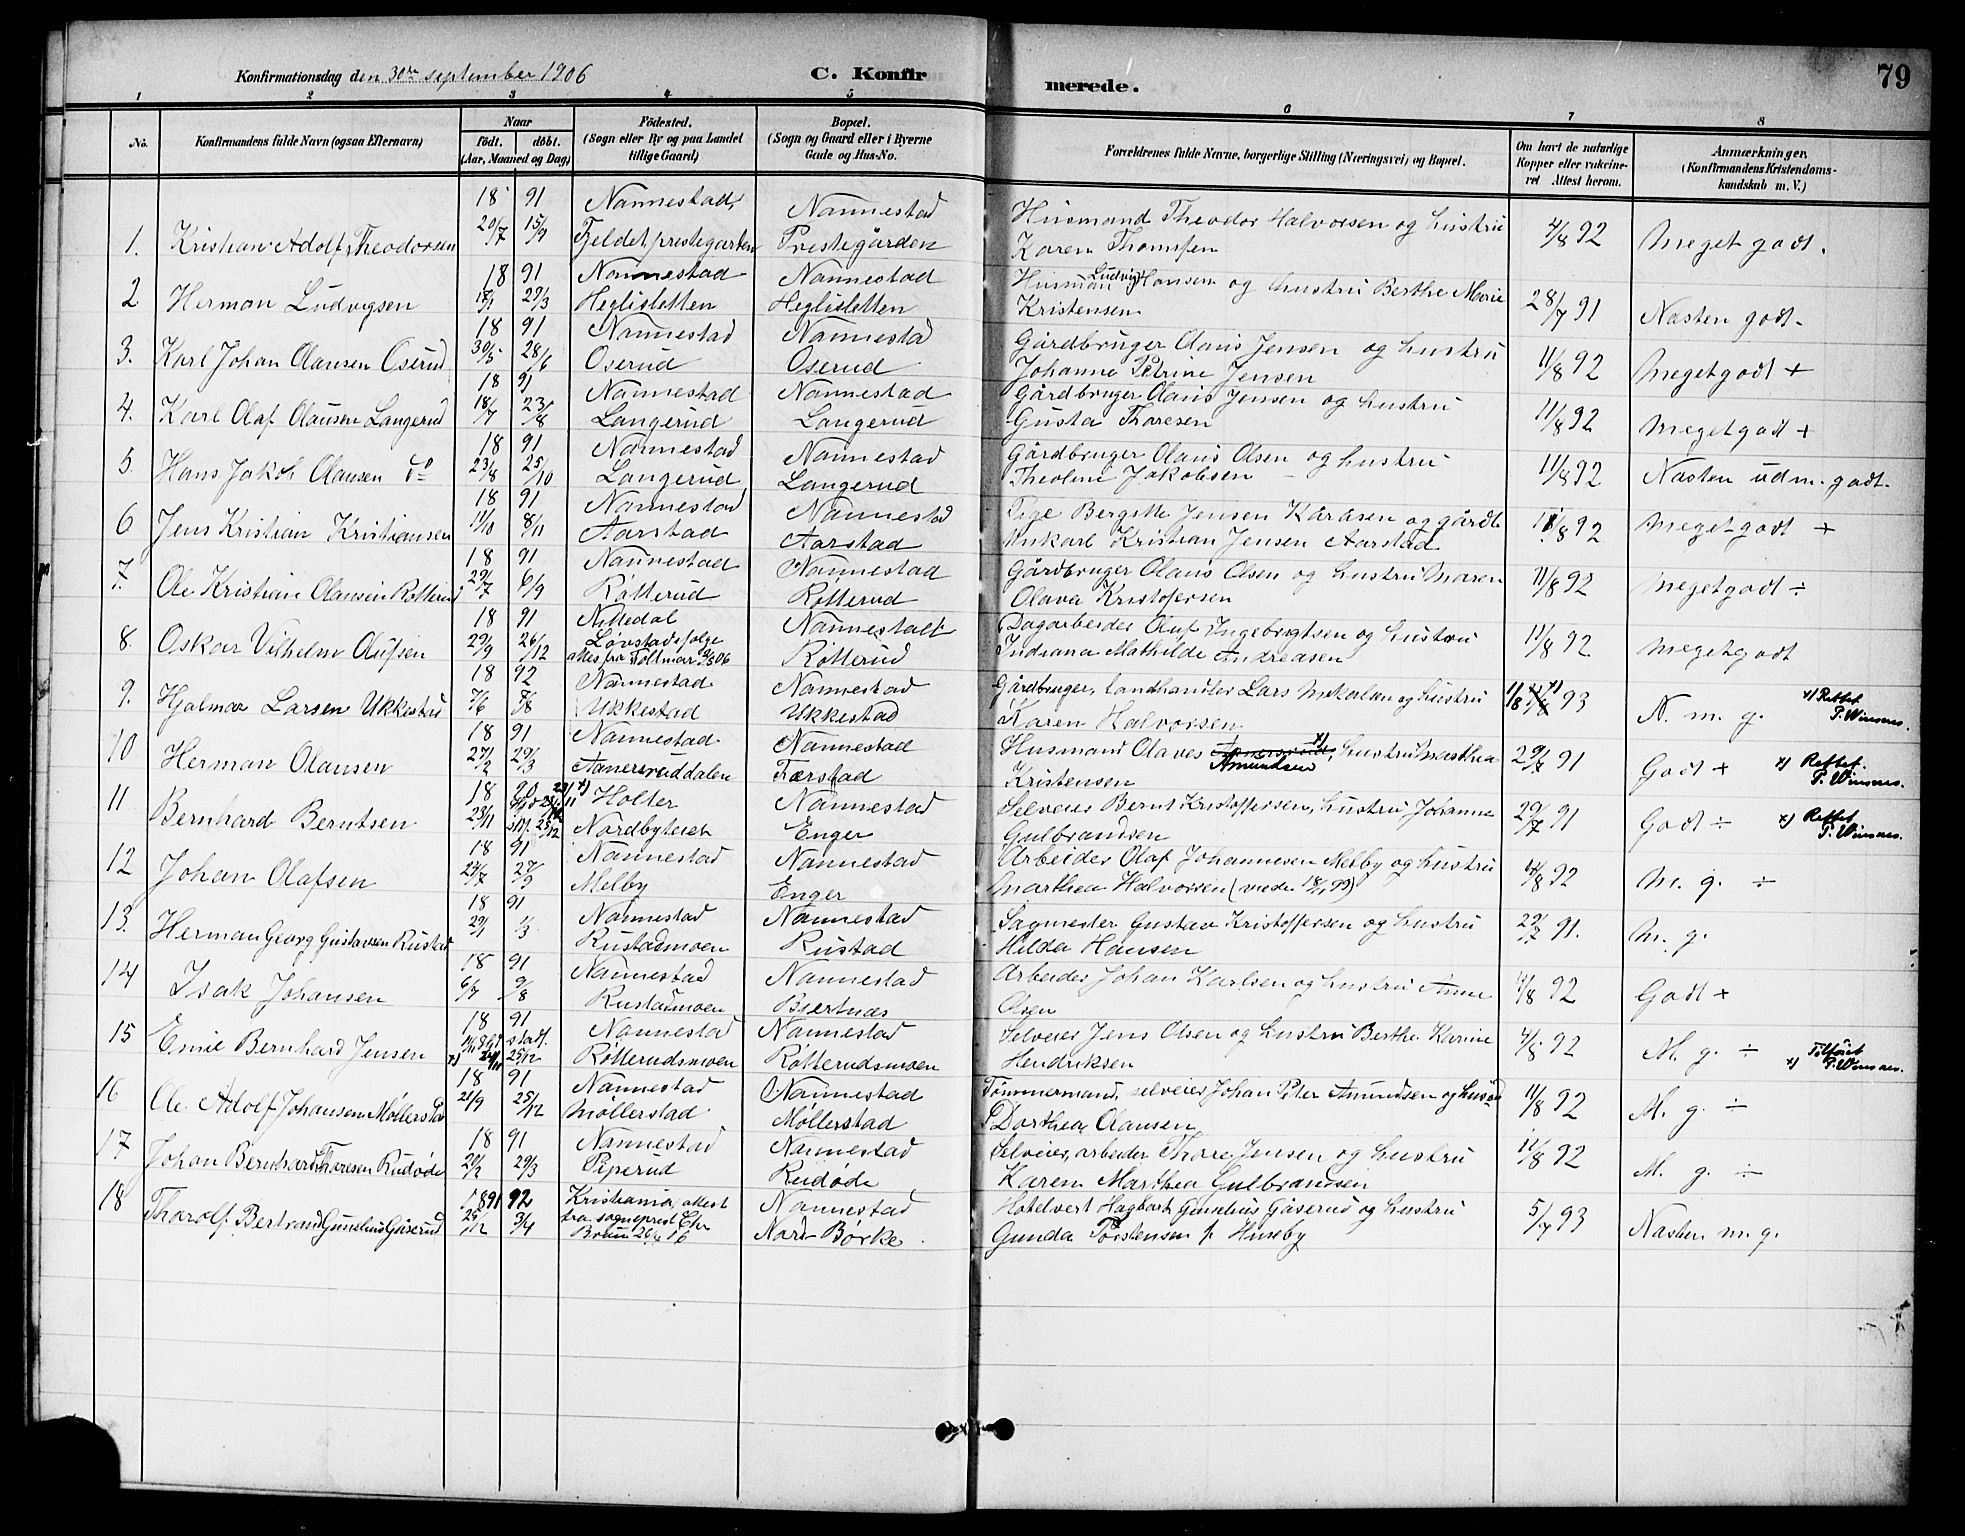 Konfirmationsdag den 30te september 1906 C. Konfir merede. 79
1 2 3 4 5 6 7 8
No. Konfirmandens fulde Navn (ogsaa Efternavn)
Naar
født. døbt.
(Aar, Maaned og Dag)
Fødested.
(Sogn eller By og paa Landet
tillige Gaard)
Bopæl.
(Sogn og Gaard eller i Byerne
Gade og Hus-No.
Forældrenes fulde Navne, borgerlige Stilling (Næringsvei) og Bopæl.
Om havt de naturlige
Kopper eller vakcine-
ret Attest herom.
Anmærkninger.
(Konfirmandens Kristendoms-
kundskab m. V.)
18 91 Nannestad, Nannestad Husmand Theodor Halvorsen og hustru
1. Kristian Adolf Theodorsen 20/7 15/9 Fjeldet prestegarden Prestegården Karen Thomsen 4/8 92 Meget godt.
18 91 Nannestad Nannestad Husman Ludvig Hansen og hustru Berthe Marie
2 Herman Ludvigsen 29/3 Heglisletten Heglisletten Kristensen 28/7 91 Næsten godt.
18 91 Nannestad Nannestad Gårdbruger Olaus Jensen og hustru
3. Karl Johan Olausen Oserud 30/5 28/6 Oserud Oserud Johanne Petrine Jensen 11/8 92 Megetgodt +
18 91 Nannestad Nannestad Gårdbruger Olaus Jensen og hustru
4. Karl Olaf Olausen Langerud 18/7 23/8 Langerud Langerud Gusta Thoresen 11/8 92 Megetgodt +
18 91 Nannestad Nannestad Gårdbruger Olaus Olsen og hustru
5 Hans Jakob Olausen do 23/8 25/10 Langerud Langerud Theoline Jakobsen 11/8 92 Næsten udm. godt.
18 91 Nannestad Nannestad Pige Bergitte Jensen Kåråsen og gårdb.
6 Jens Kristian Kristiansen 11/10 8/11 Aarstad Aarstad Unkarl Kristian Jensen Aarstad 11/8 92 Megetgodt +
18 91 Nannestad Nannestad Gårdbruger Olaus Olsen og hustru Maren
7. Ole Kristian Olausen Røtterud 29/7 6/9 Røtterud Røtterud Olava Kristofersen 11/8 92 Megetgodt ÷
18 91 Nittedal Nannestad Dagarbeider Oluf Ingebrigtsen og hustru
8. Oskar Vilhelm Olufsen 29/9 26/12 Løvstad ifølge
attes fra 06 Røtterud Indiana Mathilde Andreasen 11/8 92 Megetgodt
18 92 Nannestad Nannestad Gårdbruger, landhandler Lars Mikalsen og hustru
9. Hjalmar Larsen Ukkestad 7/6 Ukkestad Ukkestad Karen Halvorsen 11/8 93 N. m. g. x) Rettet
P. Winsnes.
18 91 Nannestad Nannestad Husmand Olaves Amundsen, hustru Marthea
10 Herman Olausen 27/2 29/3 Aanerruddalen Færstad Kristensen 29/7 91 Godt + x) Rettet.
P. Winsnes.
18 90 Holter Nannestad Selveier Bernt Kristoffersen, hustru Johanne
11 Bernhard Berntsen 23/11 25/12 Nordbyteiet Enger Gulbrandsen 29/7 91 Godt ÷ x) Rettet
P. Winsnes.
18 91 Nannestad Nannestad Arbeider Olaf Johannesen Melby og hustru
12 Johan Olafsen 23/7 27/9 Melby Enger Marthea Halvorsen 11/8 92 M. g. ÷
18 91 Nannestad Nannestad Sagmester Gustav Kristoffersen og hustru
13. Herman Georg Gustavsen Rustad 29/1 1/3 Rustadmoen Rustad Hilda Hansen 29/7 91. M. g.
18 91 Nannestad Nannestad Arbeider Johan Karlsen og hustru Anne
14 Isak Johansen 6/7 9/8 Rustadmoen Bjertnæs Olsen 11/8 92 Godt +
18 91 Nannestad Nannestad Selveier Jens Olsen og hustru Berthe Karine
15 Emil Bernhard Jensen 25/12 Røtterudsmoen Røtterudsmoen Hendriksen 4/8 92 M. g. ÷ x) Tilføiet
P. Winsnes.
18 91 Nannestad Nannestad Tømmermand, selveier Johan Peter Amundsen og hustru
16 Ole Adolf Johansen Møllerstad 21/9 25/12 Møllerstad Møllerstad Dorthea Olausen 11/8 92 M. g. ÷
18 91 Nannestad Nannestad Selveier, arbeider Thore Jensen og hustru
17 Johan Bernhard Thoresen Rudøde 20/2 29/3 Piperud Rudøde Karen Marthea Gulbrandsen 11/8 92 M. g. ÷
1891 92 Kristiania, attest Nannestad Hotelvert Hagbart Gunelius Gåserud og hustru
18 Tharolf Bertrand Gunelius Gåserud 25/12 3/4 fra sogneprest Chr
Brun Nord Børke. Gunda Torstensen f. Huseby 5/7 93 Næsten m. g.